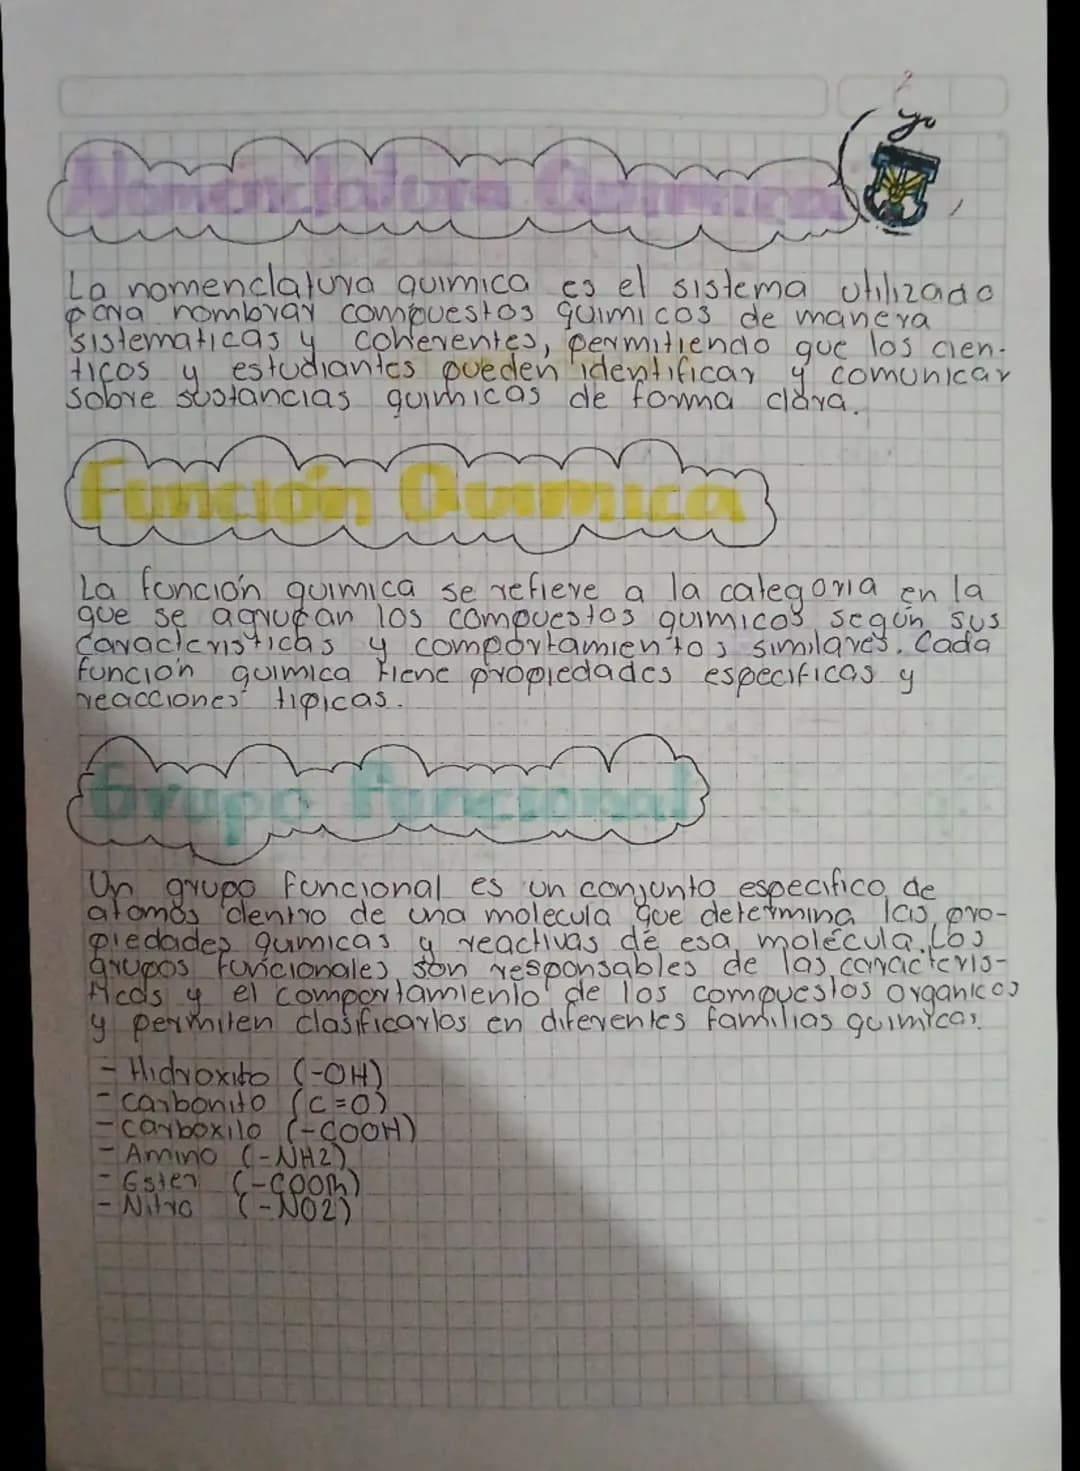 Nomenclatura Quimica
La nomenclatura quimica es el sistema utilizado
para nombrar compuestos quimicos de manera
sistematicas y coherentes, permitiendo que los cien-
ticos y estudiantes pueden identificar y comunicar
sobre sustancias quimicas de forma clara.
Función Quimica
La función quimica se refiere a la categoria en la
que se agrupan los compuestos quimicos según sus
caracteristicas y comportamientos similares. Cada
función quimica tiene propiedades especificas y
reacciones tipicas.
Grupo Funcional
Un grupo funcional es un conjunto especifico de
atomos dentro de una molecula que determina las pro-
piedades quimicas y reactivas de esa molécula. Los
grupos funcionales son responsables de las caracteris-
ticas y el comportamiento de los compuestos organicos
y permiten clasificarlos en diferentes familias quimicas.
- Hidroxito (-OH)
- carbonito (C=O)
- carboxilo (-COOH)
- Amino (-NH2)
- Ester (-COOR)
- Nitro (-NO2)